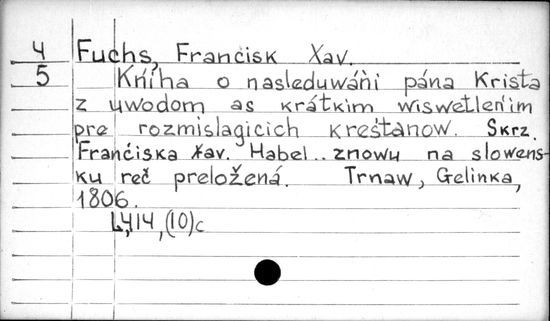 4 Fuchs, Francisk Xav.
5 Kńiha o nasleduwáńi pána Krista
z uwodom as krátkim wiswetleńim
pre rozmislagicich kresťanow. Skrz.
Franćiska Xav. Habel.. znowu na slowens-
ku reč preložená. Trnaw, Gelinka,
1806.
L,414,(10)c